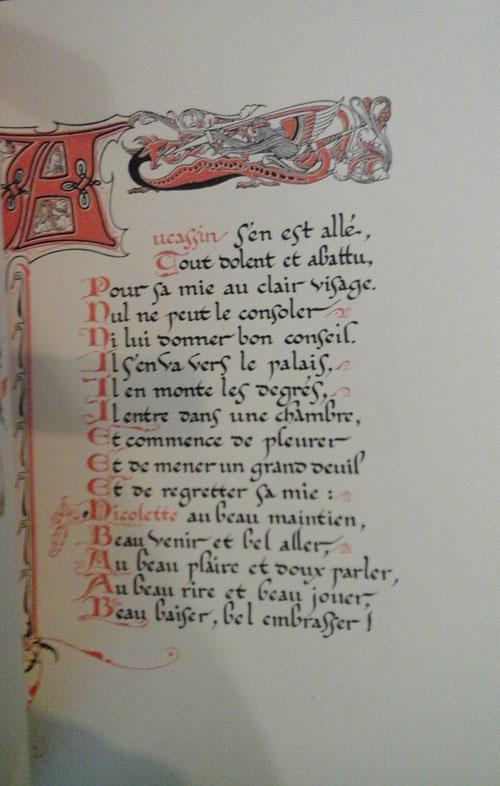 Aucassin s'en est allé,
Tout dolent et abattu,
Pour sa mie au clair visage.
Nul ne peut le consoler
Ni lui donner bon conseil.
Il s'en va vers le palais,
Il en monte les degrés,
Il entre dans une chambre,
Et commence de pleurer
Et de mener un grand deuil
Et de regretter sa mie :
Nicolette au beau maintien,
Beau venir et bel aller,
Au beau plaire et doux parler,
Au beau rire et beau jouer,
Beau baiser, bel embrasser !